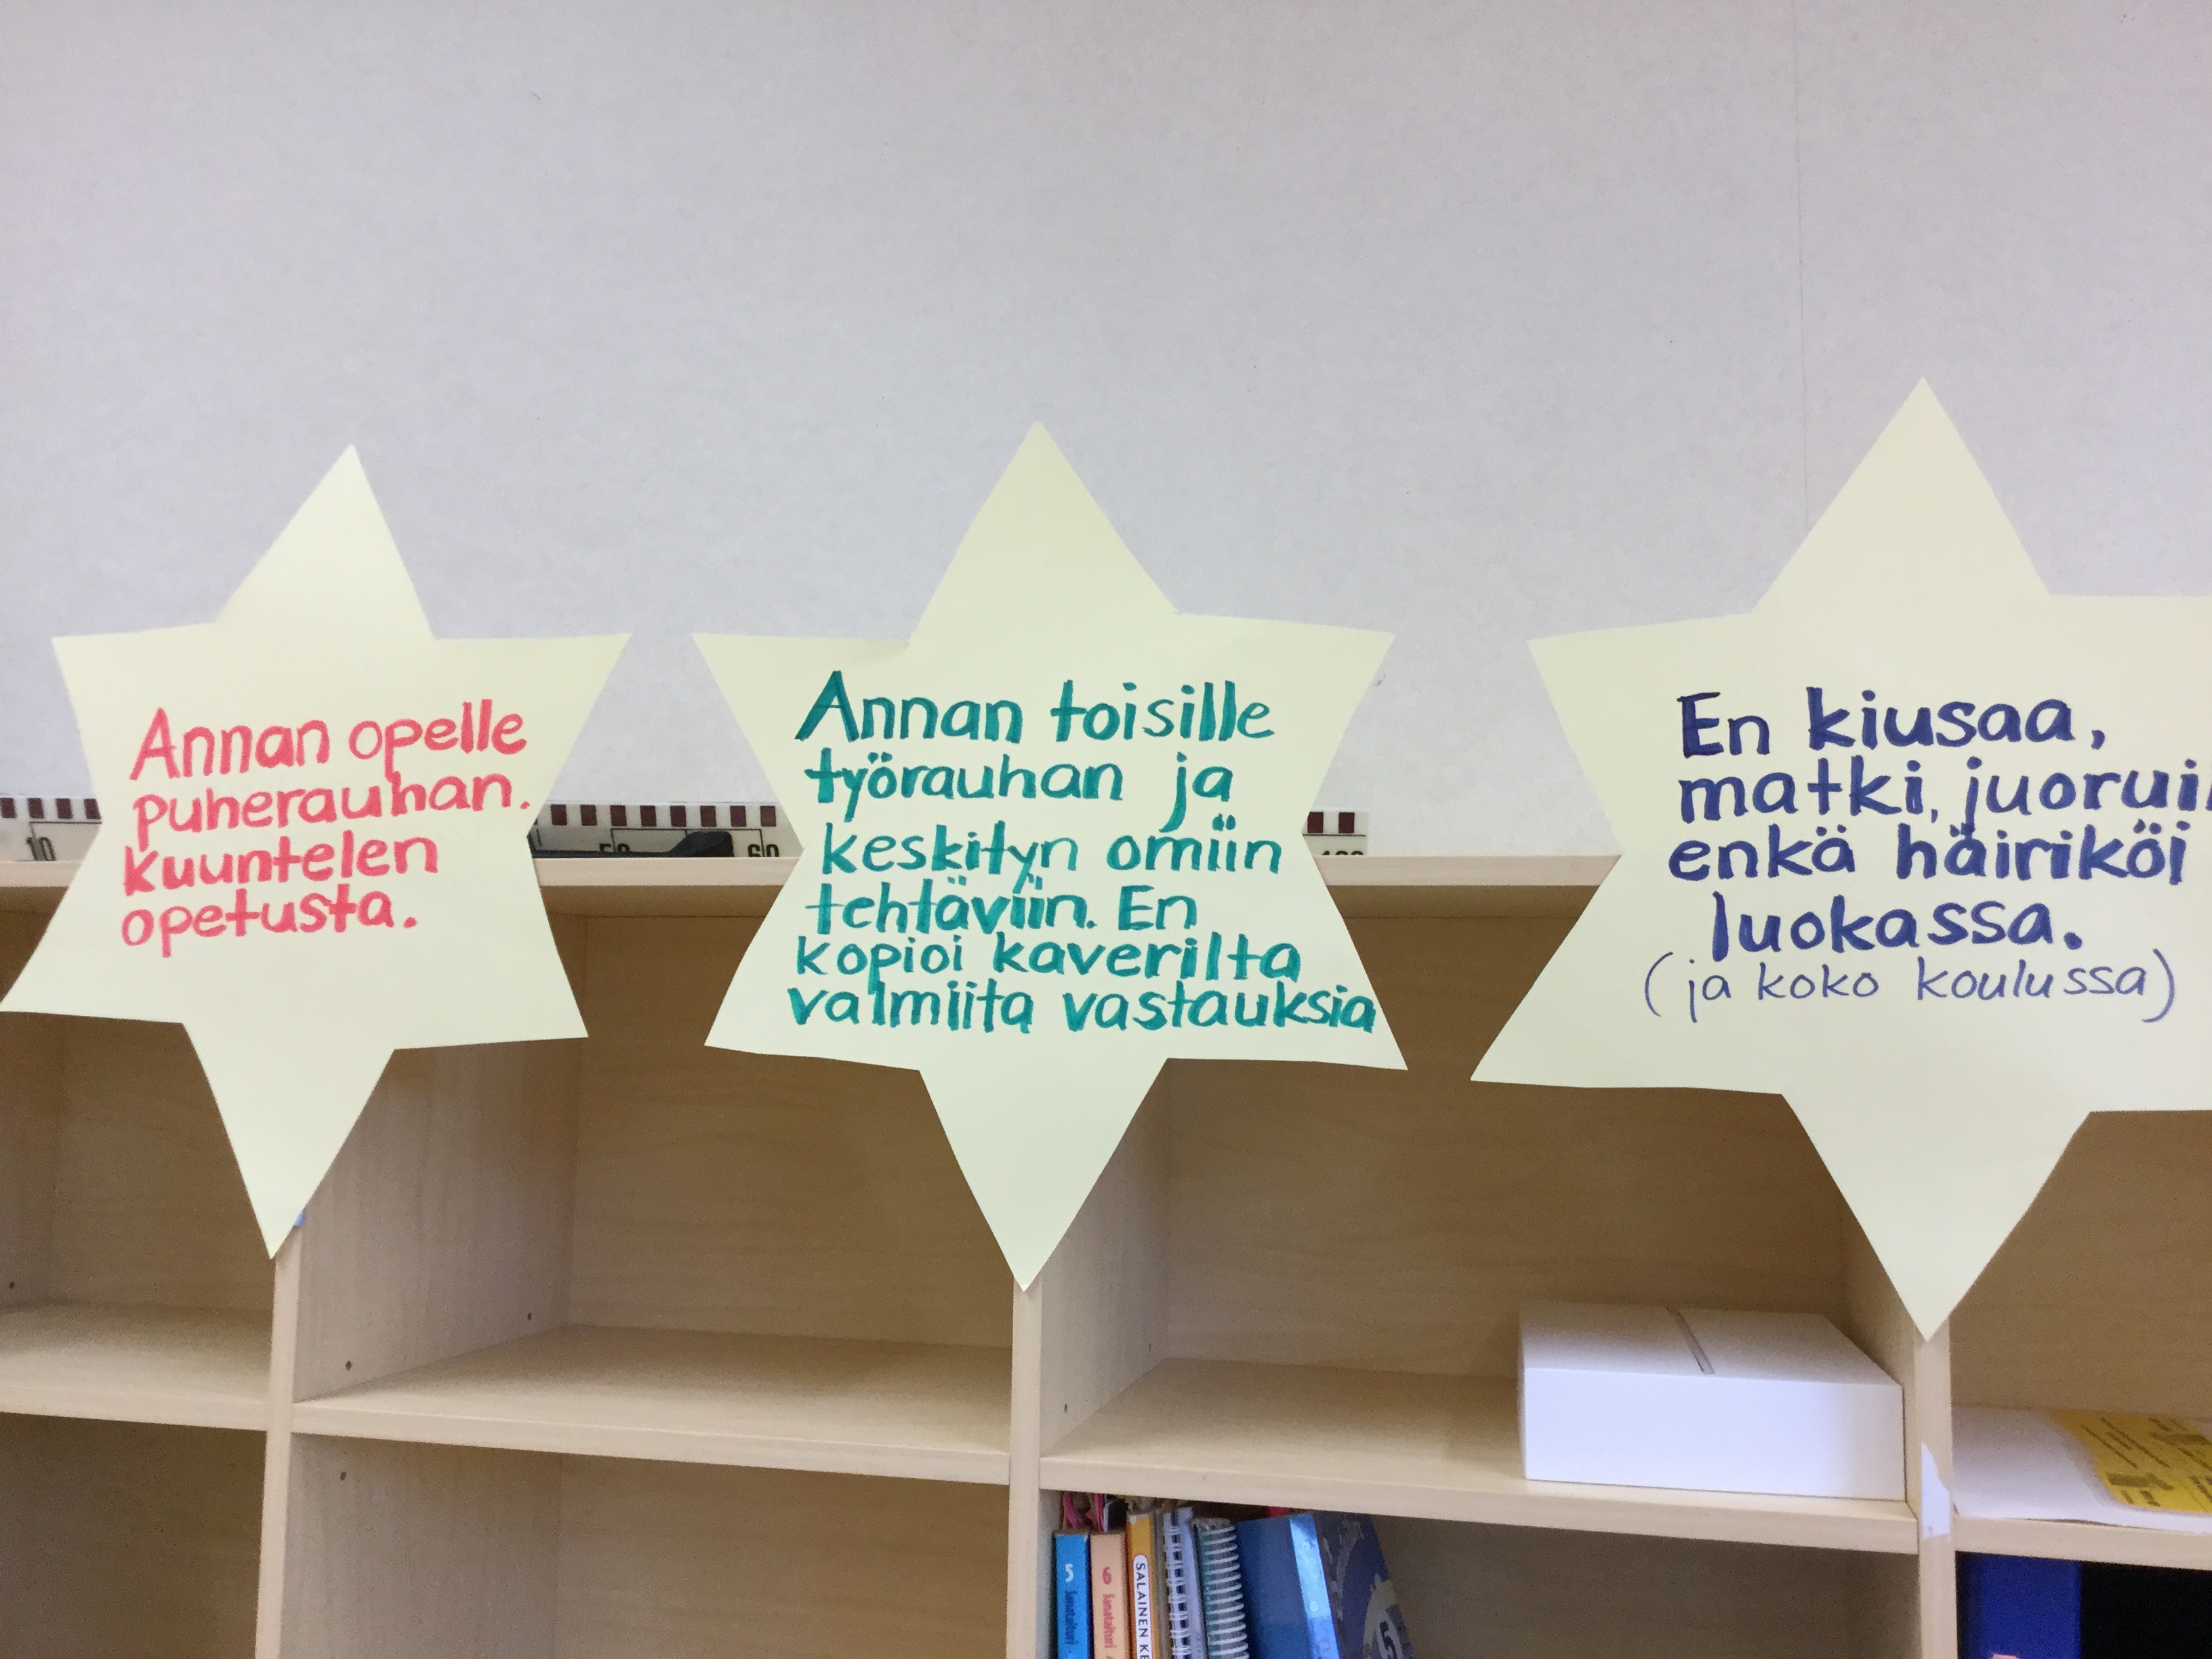 Annan opelle
puherauhan.
Kuuntelen
opetusta.
Annan toisille
työrauhan ja
keskityn omiin
tehtäviin. En
kopioi kaverilta
valmiita vastauksia
En kiusaa,
matki, juorui
enkä häiriköi
luokassa.
(ja koko koulussa)
10
60
5 Sanataituri
6 Sanataituri
SALAINEN KE
5